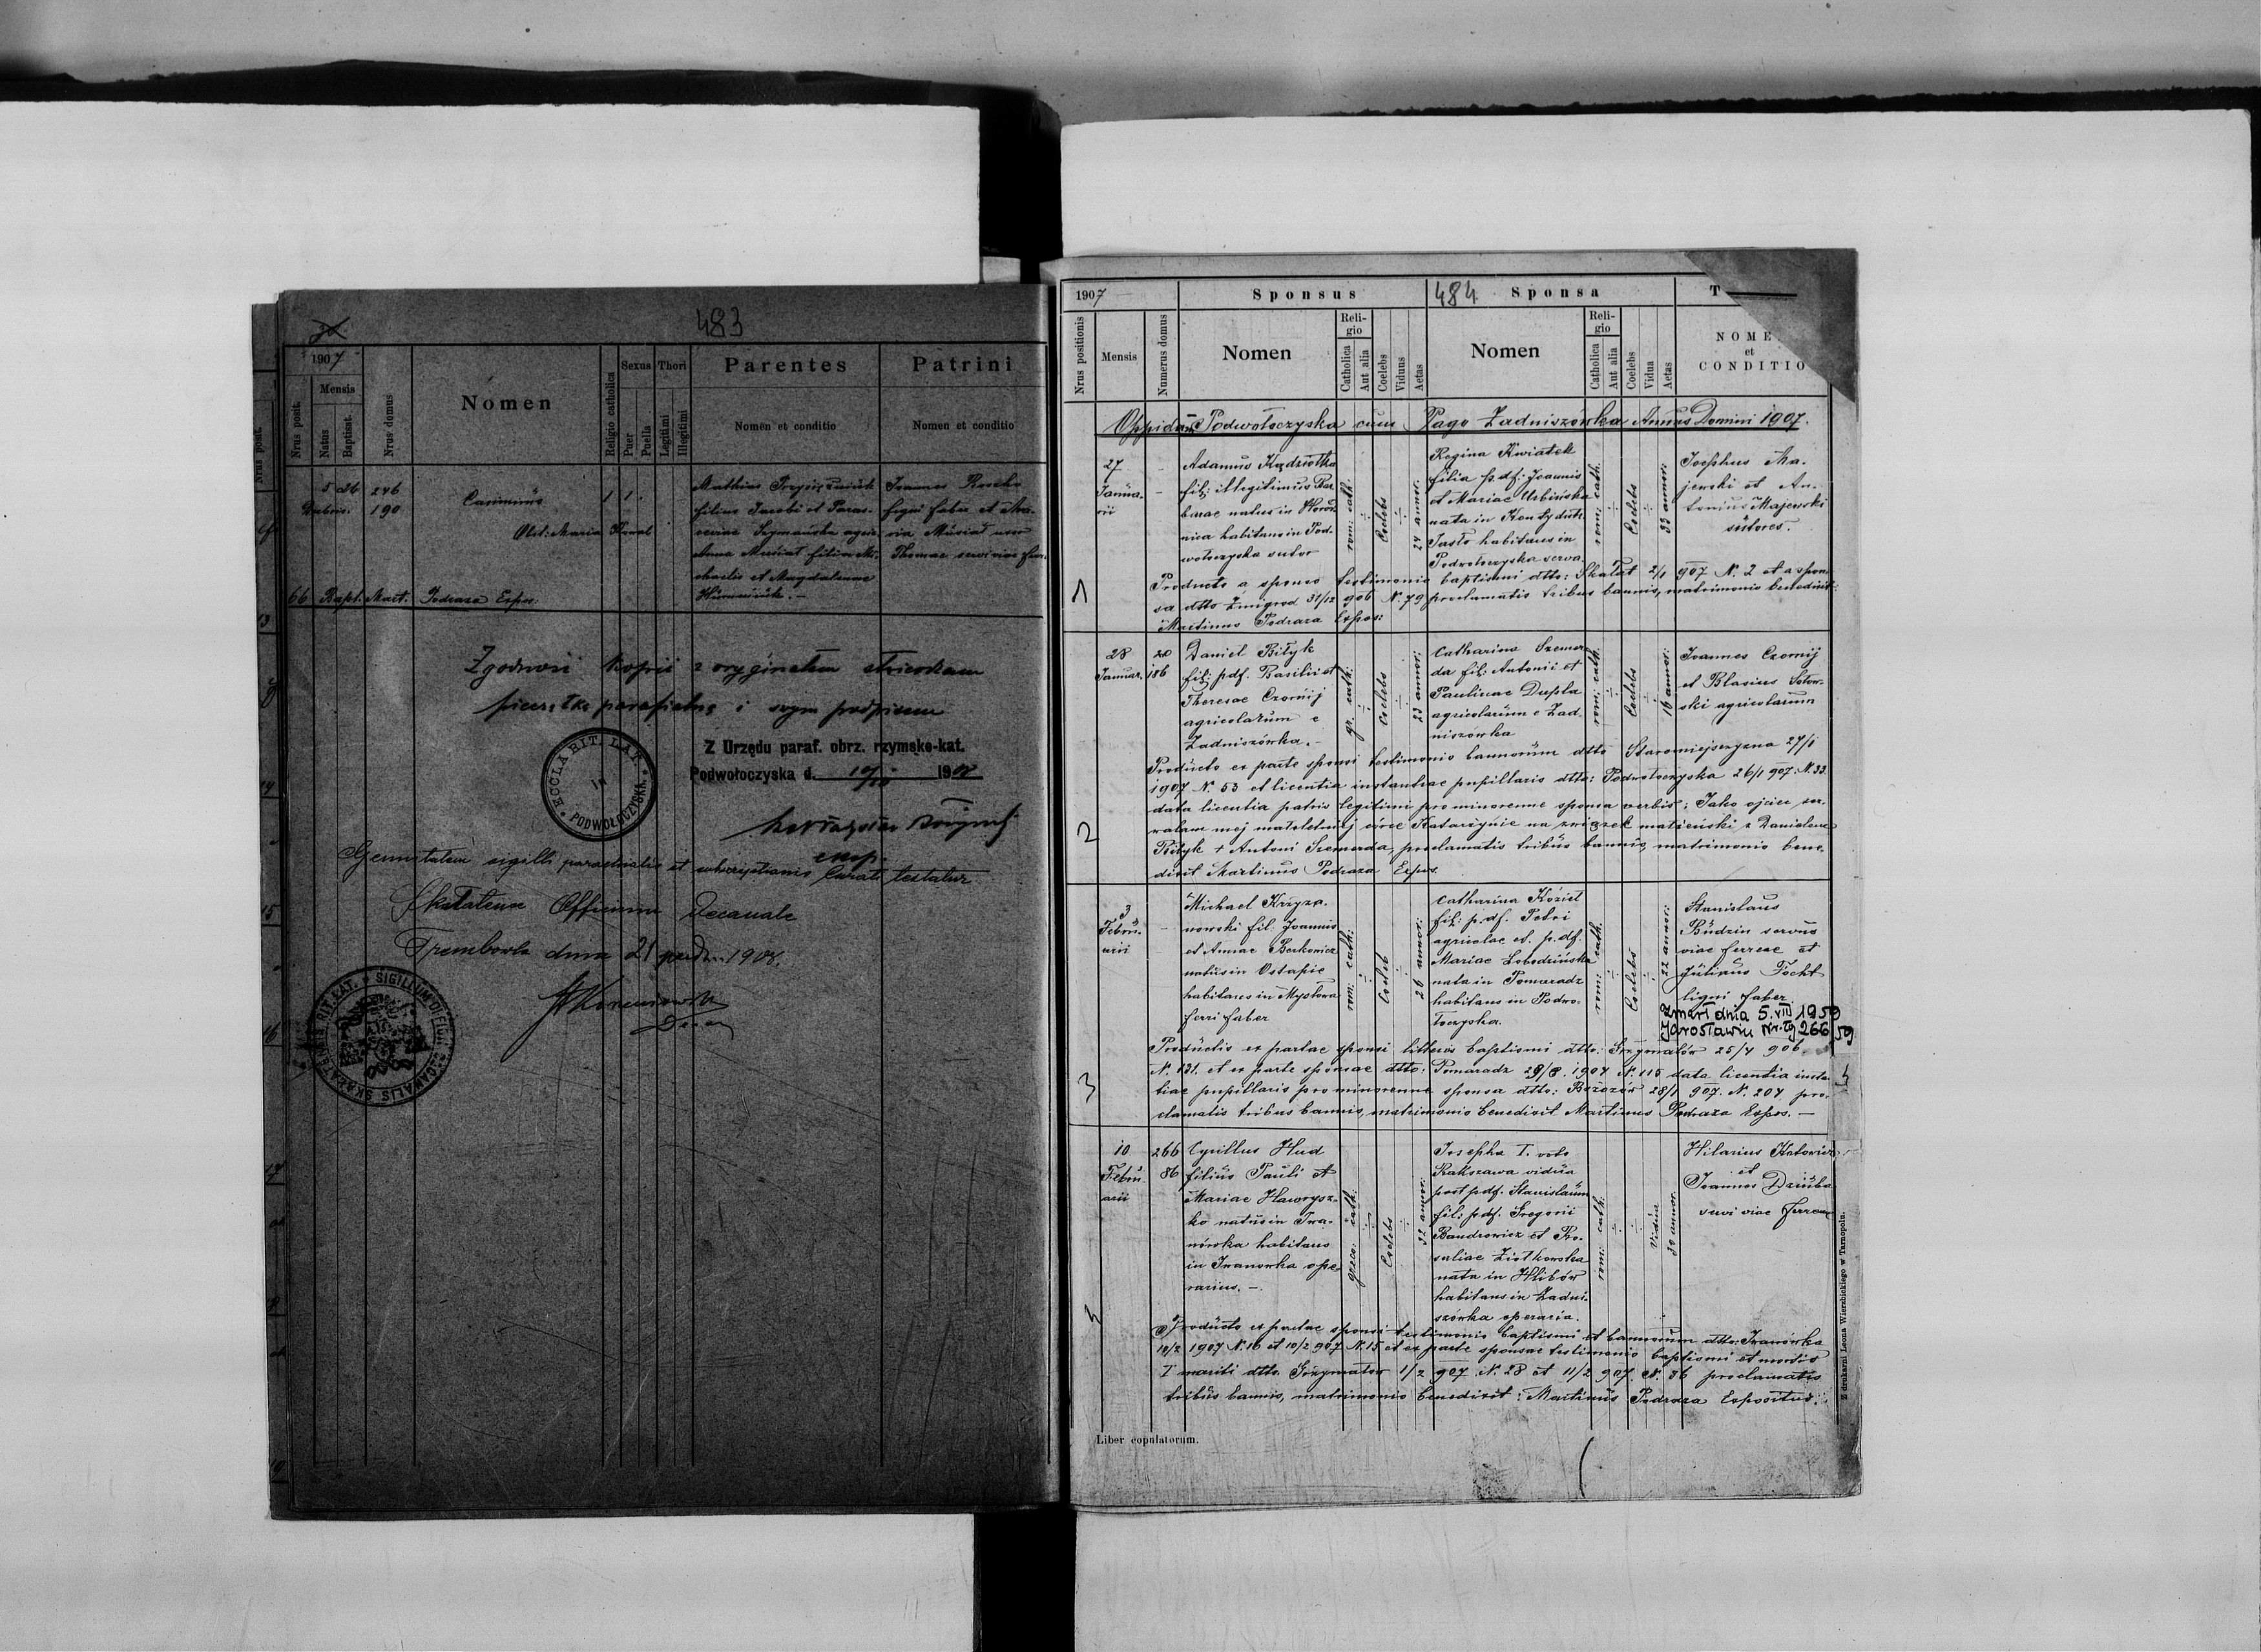 483
1907
Nrus posit.
Mensis
Natus
Baptisat.
Nrus domus
Nomen
Religio catholica
Sexus
Puer
Puella
Thori
Legitimi
Illegitimi
Parentes
Nomen et conditio
Patrini
Nomen et conditio
5 26 246
190
Casimirus
Obst: Maria Kowal
1 1
Mathias
filius Jacobi et Paras-
ceviae Szymańska agric.
Anna Musiał filia Mi-
chaelis et Magdalenae
Joannes
ligni faber et Ma-
ria Musiał uxor
Thomae servi viae fer.
66 Bapt. Mart. Podraza Expos.
Zgodność kopii z oryginałem stwierdzam
pieczątką parafialną i swym podpisem
Z Urzędu paraf. obrz. rzymsko-kat.
Podwołoczyska d. 1908
ECCLA RIT. LAT. IN PODWOŁOCZYSKA
Genuitatem sigilli parochialis et subscriptionis Curati testatur
Skalatense Officium Decanale
Trembowla dnia 21 1908.
SIGILLUM OFFICII DECANALIS SKALATENSIS RIT. LAT.
1907
Sponsus
484
Sponsa
T
Nrus positionis
Mensis
Numerus domus
Nomen
Religio
Catholica
Aut alia
Coelebs
Viduus
Aetas
Nomen
Religio
Catholica
Aut alia
Coelebs
Vidua
Aetas
NOME
et
CONDITIO
Oppidum Podwołoczyska cum Pago Zadniszówka Annus Domini 1907.
1
27
Januarii
Adamus Kądziołka
fil: illegitimus Bar-
barae natus in Woroń-
nica habitans in Pod-
wołoczyska sutor
rom: cath.
Coelebs
24 annor.
Regina Kwiatek
filia p.df: Joannis
et Mariae Urbińska
nata in Kąty distr.
Jasło habitans in
Podwołoczyska serva
rom: cath.
Coelebs
33 annor:
Josephus Ma-
jewski et An-
tonius Majewski
sutores.
Producto a sponso testimonio baptismi dtto: Skałat 2/1 907 N. 2 et a spon-
sa dtto Żmigrod 31/12 906 N. 79 proclamatis tribus bannis, matrimonio benedixit:
Martinus Podraza Expos:
2
28
Januar.
20
186
Daniel Biłyk
fil: pdf. Basilii et
Theresae Czornij
agricolarum e
Zadniszówka.
gr. cath:
Coelebs
23 annor:
Catharina Szemer-
da fil: Antonii et
Paulinae Dupla
agricolarum e Zad-
niszówka
rom: cath.
Coelebs
16 annor:
Joannes Czornij
et Blasius Sotow-
ski agricolarum
Producto ex parte sponsi testimonio bannorum dtto Staromiejszczyzna 27/1
1907 N. 53 et licentia instantiae pupillaris dtto: Podwołoczyska 26/1 907. N. 33
data licentia patris legitimi pro minorenne sponsa verbis: Jako ojciec zez-
walam mej małoletniej córce Katarzynie na związek małżeński z Danielem
Biłyk + Antoni Szemerda, proclamatis tribus bannis, matrimonio bene-
dixit Martinus Podraza Expos.
3
3
Februarii
Michael Krzyża-
nowski fil. Joannis
et Annae Berkowicz
natus in Ostapie
habitans in Mysłowa
ferri faber
rom: cath:
Coeleb
26 annor:
Catharina Kozieł
fil: p.df. Petri
agricolae et p.df.
Mariae Łobodzińska
nata in Pomaradz
habitans in Podwo-
łoczyska.
rom: cath.
Coelebs
22 annor:
Stanislaus
Budzin servus
viae ferreae et
Julianus Focht
ligni faber
Zmarł dnia 5.VIII 1959
Jarosławiu Nr. 266/59
Productis ex partae sponsi litteris baptismi dtto: Grzymałów 25/4 906.
N. 131. et ex parte sponsae dtto: Pomaradz 29/8. 1904 N. 115 data licentia instan-
tiae pupillaris pro minorenne sponsa dtto: Brzozów 28/1 907. N. 204 pro-
clamatis tribus bannis, matrimonio benedixit Martinus Podraza Expos. —
4
10
Februarii
266
86
Cyrillus Hud
filius Pauli et
Mariae Hawrysz-
ko natus in Iwa-
nówka habitans
in Iwanowka ope-
rarius. —
greco: cath:
Coelebs
32 annor:
Josepha I. voto
Rakszawa vidua
post pdf. Stanislaum
fil: pdf. Gregorii
Bandrowicz et Ro-
saliae Ziółkowska
nata in Hlibów
habitans in Zadni-
szówka operaria.
rom: cath:
Vidua
39 annor.
Hilarius Kotowicz
et
Joannes Dziuba
servi viae ferreae
Producto ex partae sponsi testimonio baptismi et bannorum dtto: Iwanówka
10/2 1907 N. 16 et 10/2 907 N. 15 et ex parte sponsae testimonio baptismi et mortis
I mariti dtto. Grzymałów 1/2 907 N. 28 et 11/2 907. N. 86 proclamatis
tribus bannis, matrimonio benedixit: Martinus Podraza Expositus.
Liber copulatorum.
Z drukarni Leona Wierzbickiego w Tarnopolu.